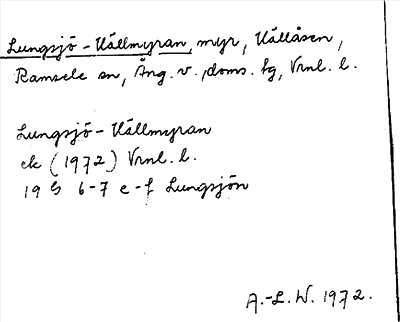 Lungsjö-Källmyran, myr, Källåsen,
Ramsele sn, Ång. v., doms. fg, Vrnl. l.
Lungsjö-Källmyran
ek (1972) Vrnl. l.
19 G 6-7 e-f Lungsjön
A.-L. W. 1972.